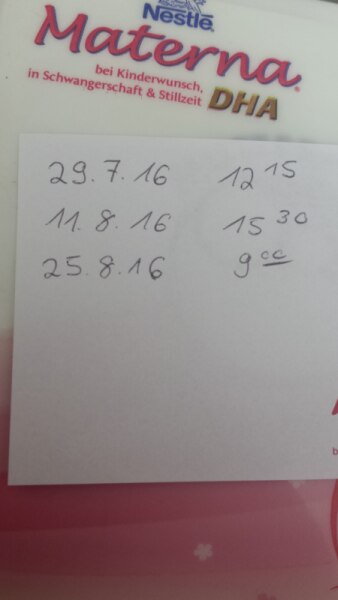 Nestlé.
Materna®
bei Kinderwunsch,
in Schwangerschaft & Stillzeit DHA
29.7.16 12 15
11.8.16 15 30
25.8.16 9 00